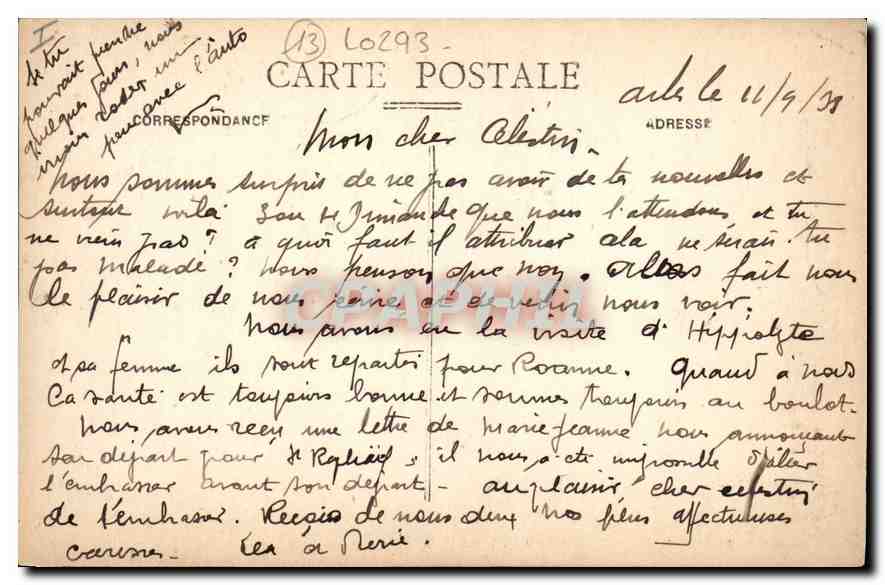 I
13 L0293-
CARTE POSTALE
CORRESPONDANCE
ADRESSE
Si tu
pouvait prendre
quelques jours, nous
irions roder un
peu avec l'auto
Arles le 11/9/38
Mon cher Célestin,
Nous sommes surpris de ne pas avoir de te nouvelles et
surtout voilà que nous l'attendons et tu
ne viens pas? à quoi faut il attribuer cela ne serais tu
pas malade? nous pensons que non. Alors fait nous
le plaisir de nous écrire et de venir nous voir.
Nous avons eu la visite d'Hippolyte
et sa femme ils sont repartis pour Roanne. Quand à nous
la santé est toujours bonne et sommes toujours au boulot.
Nous avons reçu une lettre de Marie Jeanne nous annonçant
son départ pour St Raphaël, il nous a été impossible d'aller
l'embrasser avant son départ - au plaisir cher celestin
de t'embrasser. Reçois de nous deux nos plus affectueuses
caresses - Léa &
CPAPHIL